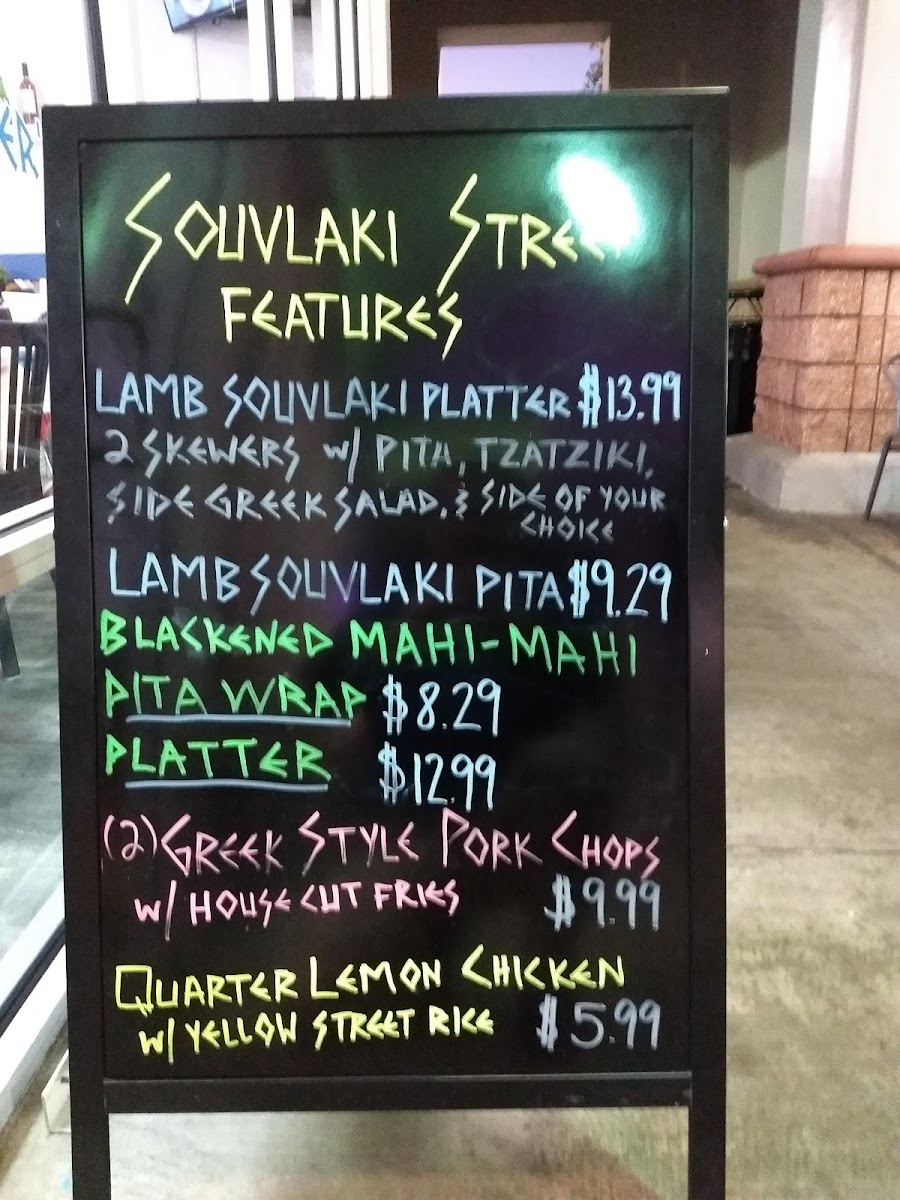 ER
SOUVLAKI STREET
FEATURES
LAMB SOUVLAKI PLATTER $13.99
2 SKEWERS W/ PITA, TZATZIKI,
SIDE GREEK SALAD, & SIDE OF YOUR
CHOICE
LAMB SOUVLAKI PITA $9.29
BLACKENED MAHI-MAHI
PITA WRAP $8.29
PLATTER $12.99
(2) GREEK STYLE PORK CHOPS
W/ HOUSE CUT FRIES $9.99
QUARTER LEMON CHICKEN
W/ YELLOW STREET RICE $5.99